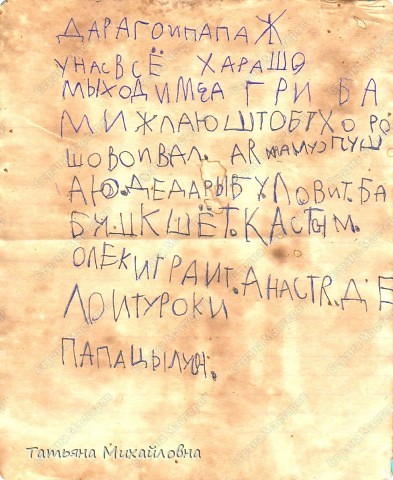 ДАРАГОИПАПАЖ
УНАСВСЁ ХАРАШО
МЫХОДИМЗА ГРИБА
МИЖЛАЮШТОБТХОРО
ШОВОИВАЛ. АЯ ПУШ
АЮ.ДЕДАРЫБУЛОВИТ.БА
БУШКШЁТ.КАСТЫМ.
ОЛЕКИГРАИТ.АНАСТЯ.ДЕ
ЛОИТУРОКИ
ПАПАЦЫЛУЮ.
Татьяна Михайловна